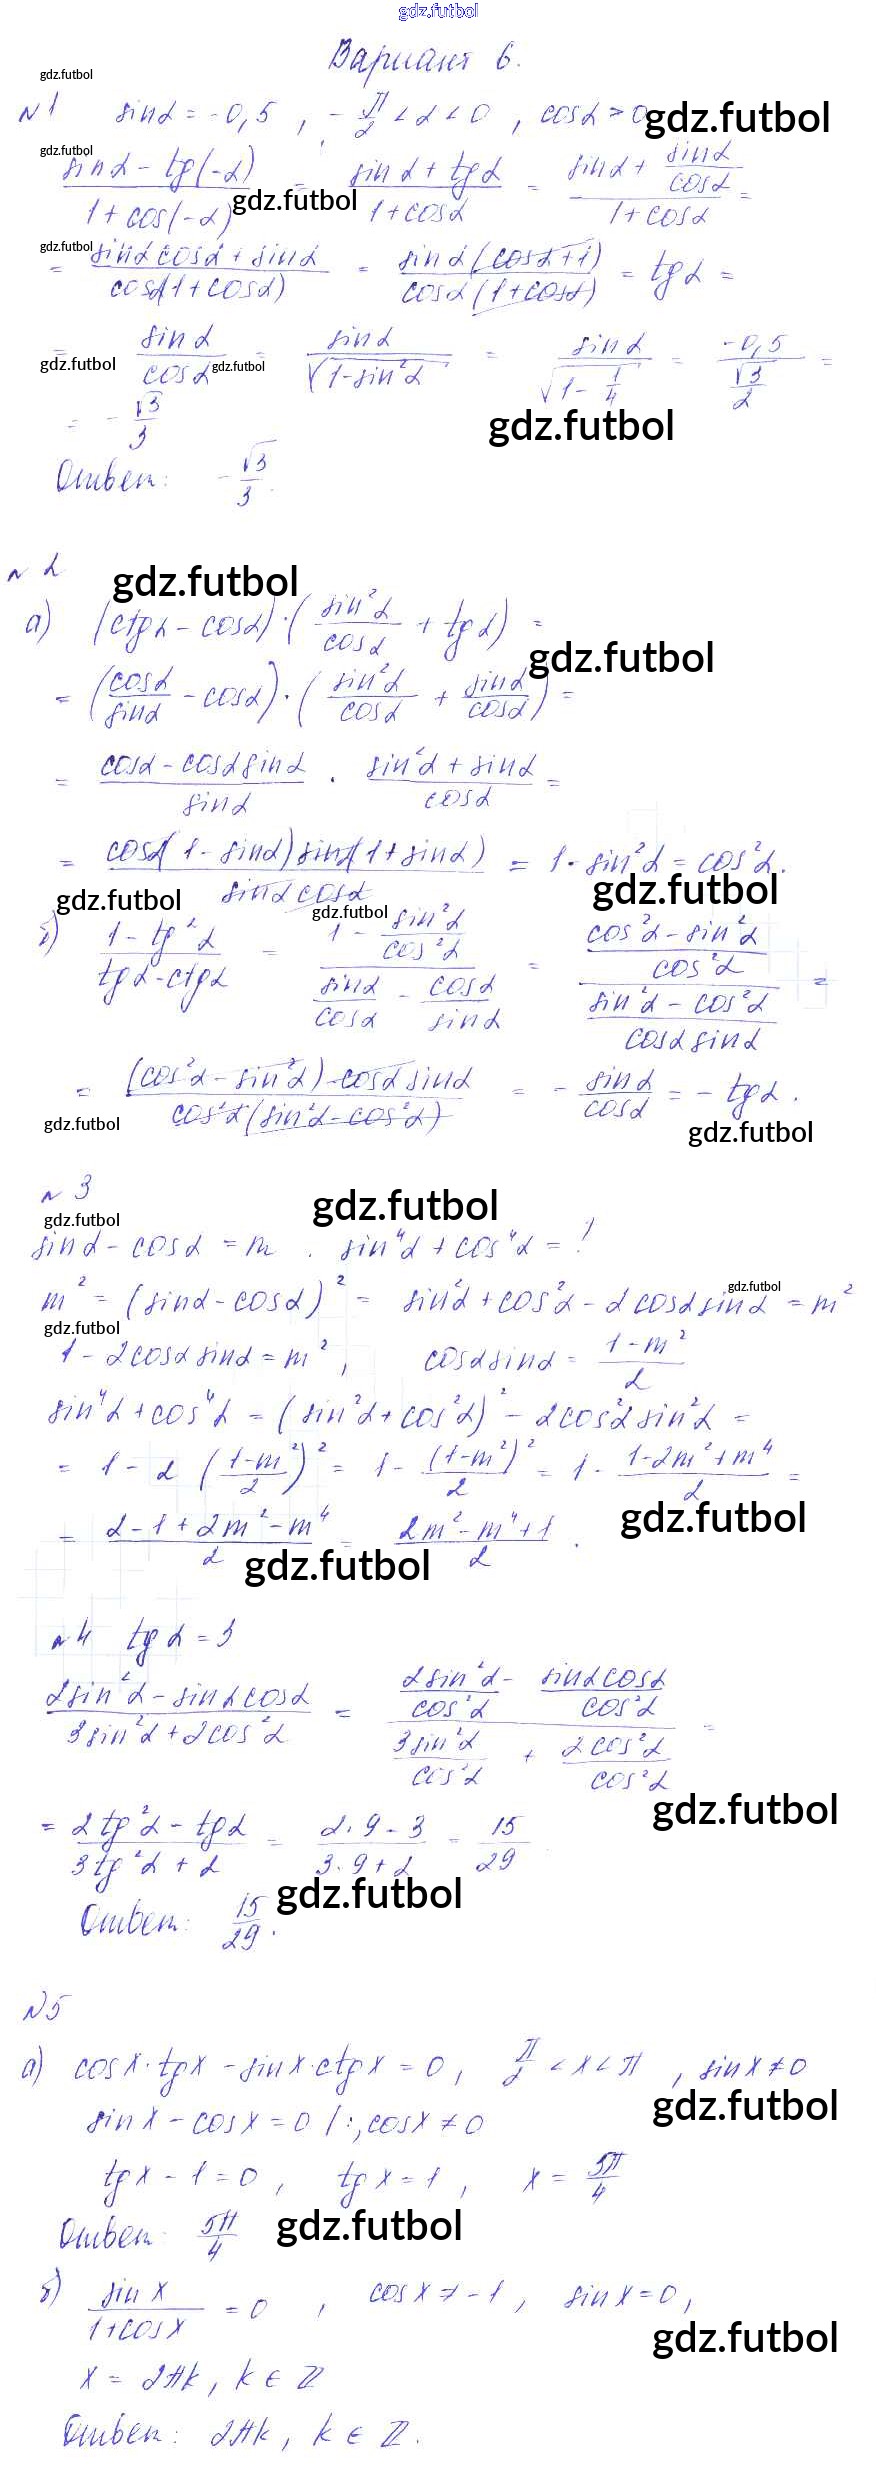 gdz.futbol
Вариант 6.
gdz.futbol
№1 sinα = -0,5 , -π/2 < α < 0 , cosα > 0
gdz.futbol
gdz.futbol
(sinα - tg(-α))/(1 + cos(-α)) = (sinα + tgα)/(1 + cosα) = (sinα + sinα/cosα)/(1 + cosα) =
gdz.futbol
gdz.futbol
= (sinα cosα + sinα)/(cosα(1 + cosα)) = (sinα(cosα + 1))/(cosα(1 + cosα)) = tgα =
= sinα/cosα = sinα/√(1 - sin²α) = sinα/√(1 - 1/4) = -0,5/(√3/2) =
gdz.futbol
gdz.futbol
= -√3/3
gdz.futbol
Ответ: -√3/3.
№2
gdz.futbol
а) (ctgα - cosα)·(sin²α/cosα + tgα) =
gdz.futbol
= (cosα/sinα - cosα)·(sin²α/cosα + sinα/cosα) =
= (cosα - cosα sinα)/sinα · (sin²α + sinα)/cosα =
= (cosα(1 - sinα) sinα(1 + sinα))/(sinα cosα) = 1 - sin²α = cos²α.
gdz.futbol
gdz.futbol
gdz.futbol
б) (1 - tg²α)/(tgα - ctgα) = (1 - sin²α/cos²α)/(sinα/cosα - cosα/sinα) = ((cos²α - sin²α)/cos²α)/((sin²α - cos²α)/(cosα sinα)) =
= ((cos²α - sin²α)·cosα sinα)/(cos²α(sin²α - cos²α)) = -sinα/cosα = -tgα.
gdz.futbol
gdz.futbol
№3
gdz.futbol
gdz.futbol
sinα - cosα = m . sin⁴α + cos⁴α = ?
gdz.futbol
m² = (sinα - cosα)² = sin²α + cos²α - 2cosα sinα = m²
gdz.futbol
1 - 2cosα sinα = m² , cosα sinα = (1 - m²)/2
sin⁴α + cos⁴α = (sin²α + cos²α)² - 2cos²α sin²α =
= 1 - 2((1 - m²)/2)² = 1 - (1 - m²)²/2 = 1 - (1 - 2m² + m⁴)/2 =
gdz.futbol
= (2 - 1 + 2m² - m⁴)/2 = (2m² - m⁴ + 1)/2 .
gdz.futbol
№4 tgα = 3
(2sin²α - sinα cosα)/(3sin²α + 2cos²α) = (2sin²α/cos²α - sinα cosα/cos²α)/(3sin²α/cos²α + 2cos²α/cos²α) =
gdz.futbol
= (2tg²α - tgα)/(3tg²α + 2) = (2·9 - 3)/(3·9 + 2) = 15/29
gdz.futbol
Ответ: 15/29.
№5
а) cosx·tgx - sinx·ctgx = 0 , π/2 < x < π , sinx ≠ 0
gdz.futbol
sinx - cosx = 0 |:, cosx ≠ 0
tgx - 1 = 0 , tgx = 1 , x = 5π/4
Ответ: 5π/4
gdz.futbol
б) sinx/(1 + cosx) = 0 , cosx ≠ -1 , sinx = 0 ,
gdz.futbol
x = 2πk , k ∈ ℤ
Ответ: 2πk , k ∈ ℤ.